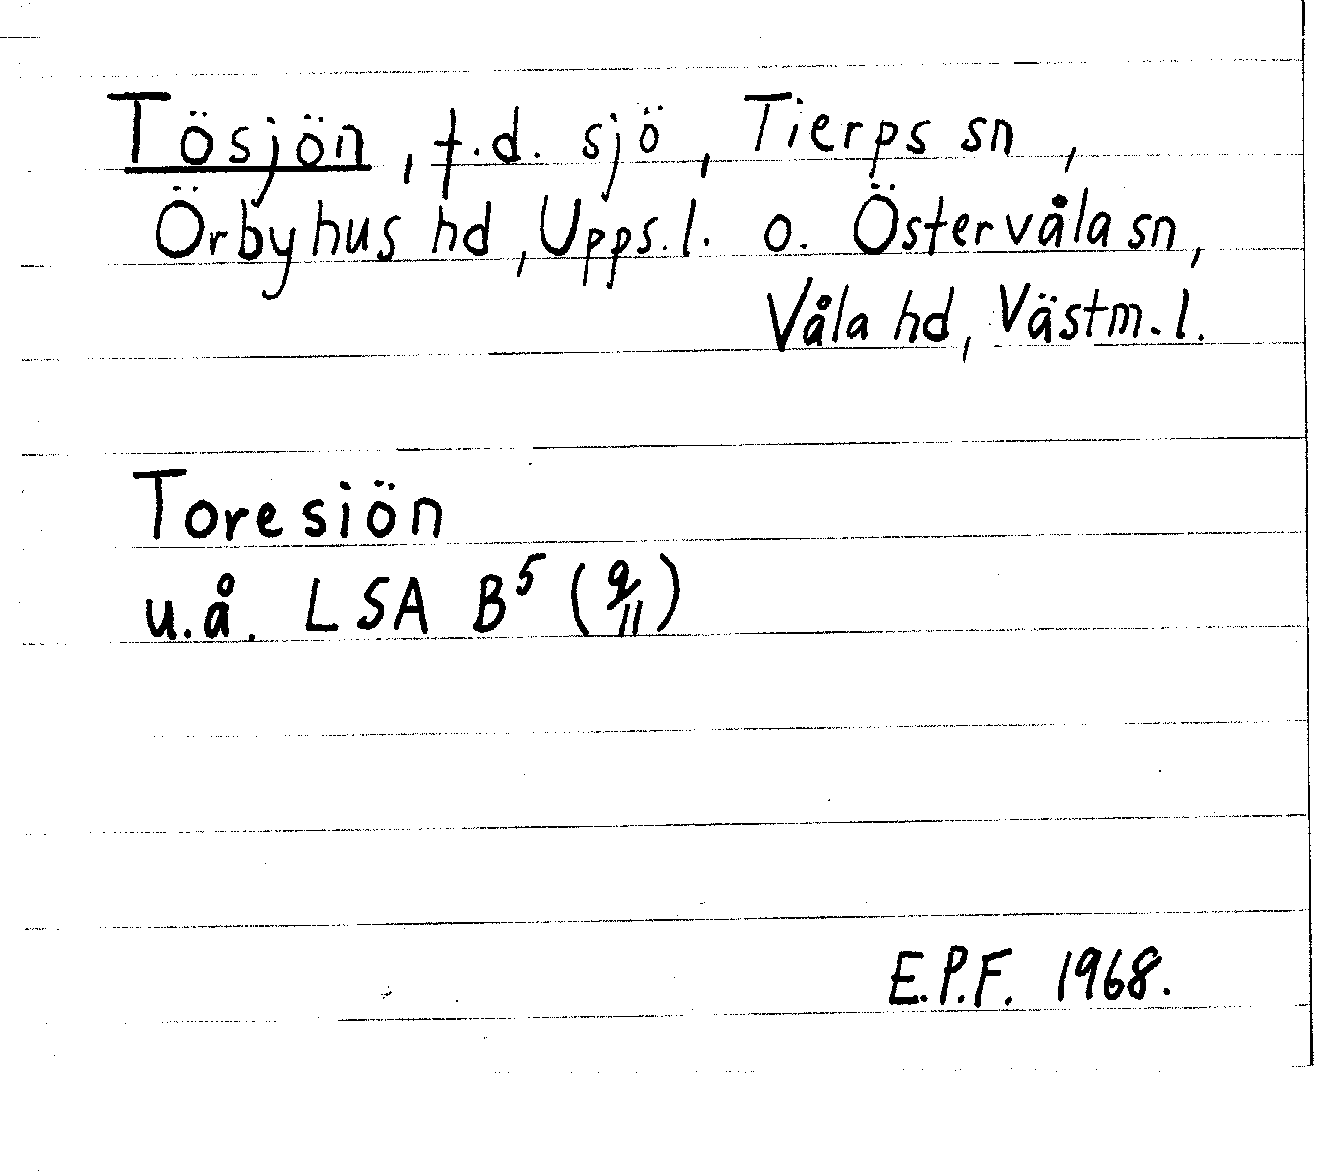 Tösjön, f.d. sjö, Tierps sn,
Örbyhus hd, Upps.l. o. Östervåla sn,
Våla hd, Västm.l.
Toresiön
u.å. LSA B⁵ (9/11)
E.P.F. 1968.